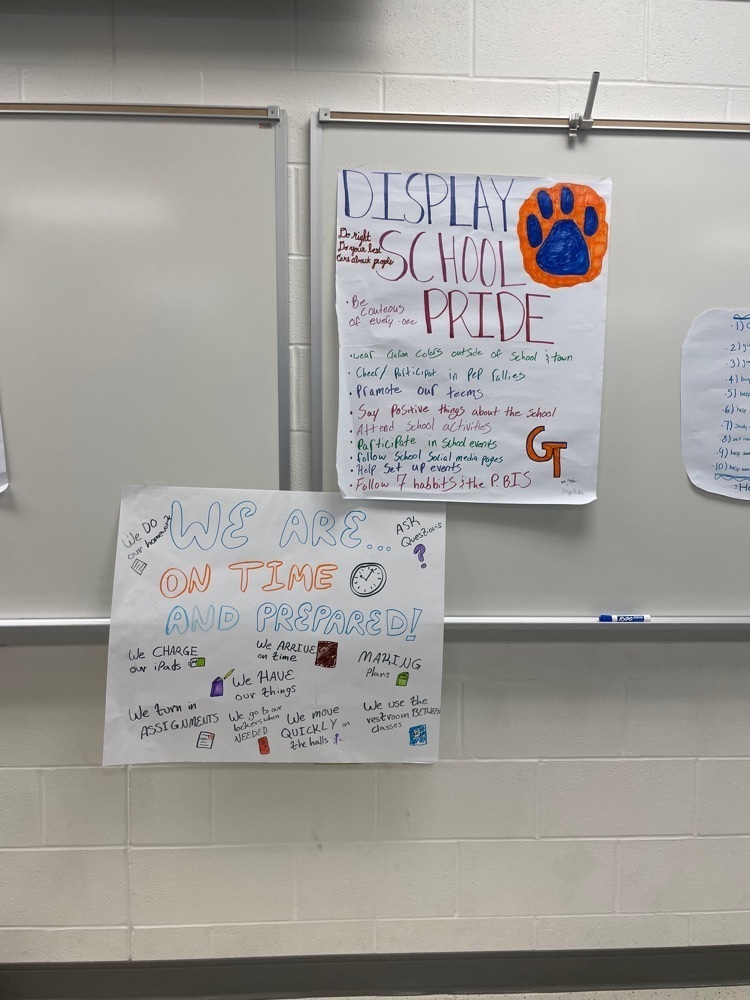 DISPLAY
SCHOOL
PRIDE
Do right
Do your best
Care about people
• Be
couteous
of every-one
• Wear Galion colors outside of school & town
• Cheer/ Participat in PeP rallies
• Promote our teems
• Say Positive things about the school
• Attend school activities
• Participate in school events
• follow School Social media pages
• Help Set up events
• Follow 7 habbits & the P.BIS
GT
WE ARE...
ON TIME
AND PREPARED!
We DO
our homework
ASK
Questions
?
We CHARGE
our iPads
We ARRIVE
on time
MAKING
Plans
We HAVE
our things
We turn in
ASSIGNMENTS
We go to our
lockers when
NEEDED
We move
QUICKLY in
the halls
We use the
restroom BETWEEN
classes
EXPO
1)
2)
3)
4)
5) help
6) help
7)
8)
9) help
10) help